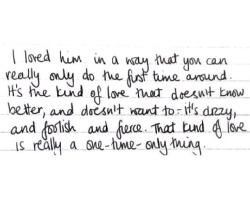 I loved him in a way that you can
really only do the first time around.
It's the kind of love that doesn't know
better, and doesn't want to - it's dizzy,
and foolish and fierce. That kind of love
is really a one-time-only thing.